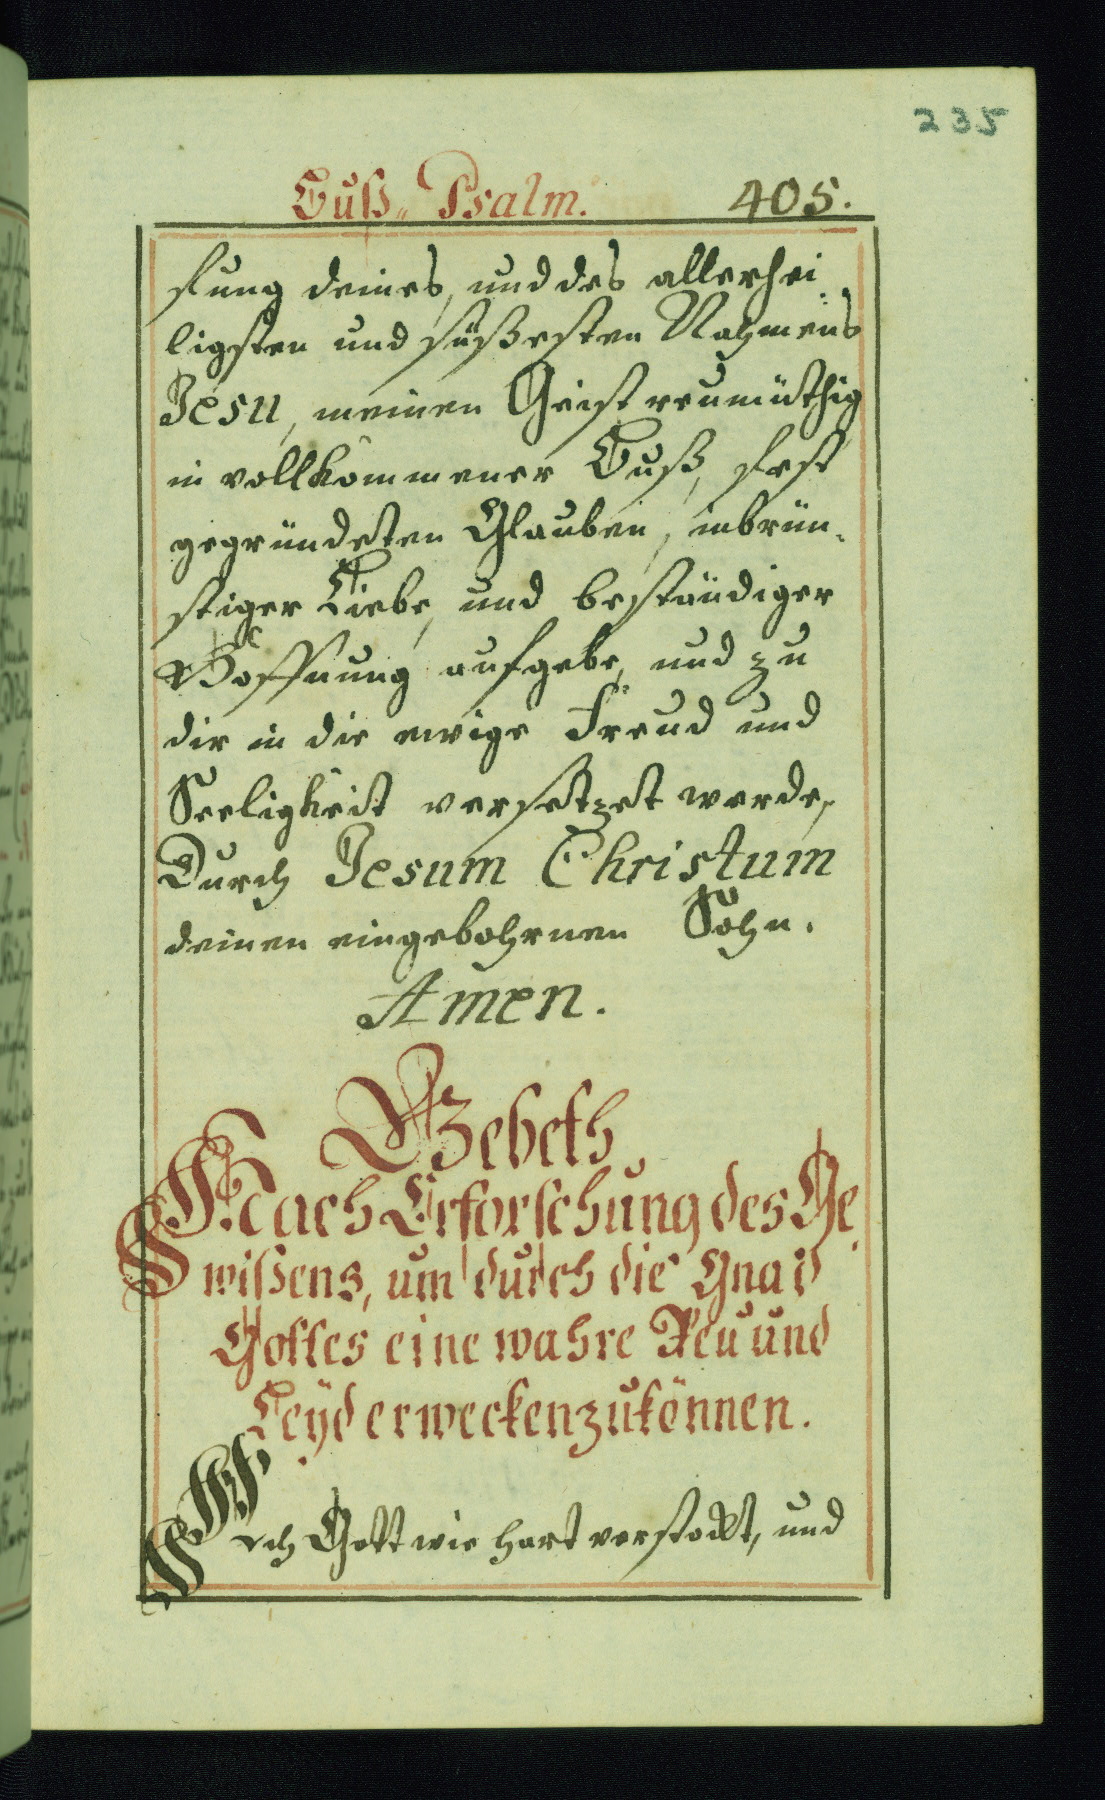 235
Buß„ Psalm. 405.
fung deines, und des allerhei
ligsten und süßesten Nahmens
Jesu, meinen Geist reumüthig
in vollkommener Buß, fest
gegründeten Glauben, inbrün-
stiger Liebe, und beständiger
Hoffnung aufgebe, und zu
dir in die ewige Freud und
Seeligkeit versetzet werde,
Durch Jesum Christum
deinen eingebohrnen Sohn.
Amen.
Gebeth
Nach Erforschung des Ge
wißens, um durch die Gnad
Gottes eine wahre Reu und
Leÿd erwecken zu können.
Ach Gott wie hart verstockt, und